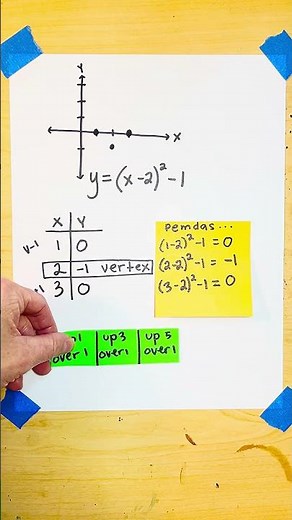 Y
X
y=(x-2)²-1
X Y
V-1
1 0
2 -1 vertex
3 0
Pemdas...
(1-2)²-1=0
(2-2)²-1=-1
(3-2)²-1=0
over 1
up 3
over 1
up 5
over 1